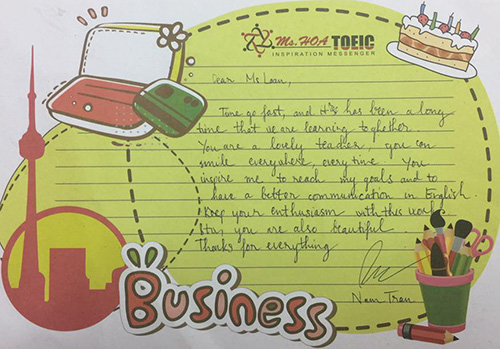 Ms. HOA TOEIC
INSPIRATION MESSENGER
Dear Ms Loan,
Time go fast, and it has been a long
time that we are learning toghether
You are a lovely teacher, you can
smile everywhere, every time. You
inspire me to reach my goals and to
have a better communication in English
Keep your enthusiasm with this work
you are also beautiful
Thanks for everything
Nam Tran
Business